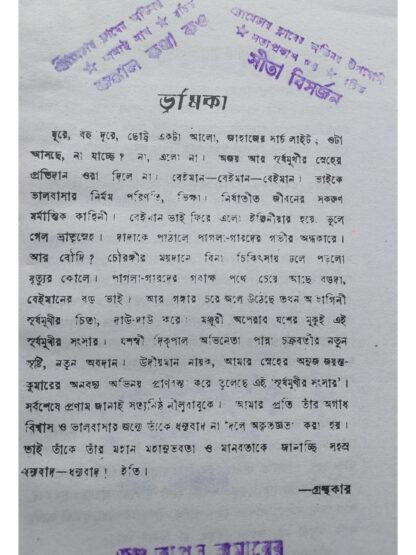 কঙ্কাল কথা কও
সীতা বিসর্জন
ভূমিকা
দূরে, বহু দূরে, ছোট্ট একটা আলো, জাহাজের সার্চ লাইট; ওটা
আসছে, না যাচ্ছে? না, এলো না। অজয় আর সূর্যমুখীর স্নেহের
প্রতিদান ওরা দিলে না। বেইমান—বেইমান—বেইমান। ভাইকে
ভালবাসার নির্মম পরিণতি, ভিক্ষা। নির্যাতীত জীবনের সকরুণ
মর্মান্তিক কাহিনী। বেইমান ভাই ফিরে এলো ইঞ্জিনীয়ার হয়ে, ভুলে
গেল ভ্রাতৃস্নেহ। দাদাকে পাঠালে পাগলা-গারদের গভীর অন্ধকারে।
আর বৌদি? চৌরঙ্গীর ময়দানে বিনা চিকিৎসায় ঢলে পড়লো
মৃত্যুর কোলে। পাগলা-গারদের গবাক্ষ পথে চেয়ে আছে বড়দা,
বেইমানের বড় ভাই। আর গঙ্গার চরে জলে উঠেছে তখন অভাগিনী
সূর্যমুখীর চিতা, দাউ-দাউ করে। মঞ্জরী অপেরার যশের মুকুট এই
সূর্যমুখীর সংসার। যশস্বী দিকপাল অভিনেতা পান্না চক্রবর্তীর নতুন
সৃষ্টি, নতুন অবদান। উদীয়মান নায়ক, আমার স্নেহের অনুজ জয়ন্ত-
কুমারের অনবদ্য অভিনয় প্রাণবন্ত করে তুলেছে এই 'সূর্যমুখীর সংসার'।
সর্বশেষে প্রণাম জানাই সত্যনিষ্ঠ নীলুবাবুকে। আমার প্রতি তাঁর অগাধ
বিশ্বাস ও ভালবাসার জন্যে তাঁকে ধন্যবাদ না দিলে অকৃতজ্ঞতা করা হয়।
তাই তাঁকে তাঁর মহান মহানুভবতা ও মানবতাকে জানাচ্ছি সহস্র
ধন্যবাদ—ধন্যবাদ! ইতি।
—গ্রন্থকার